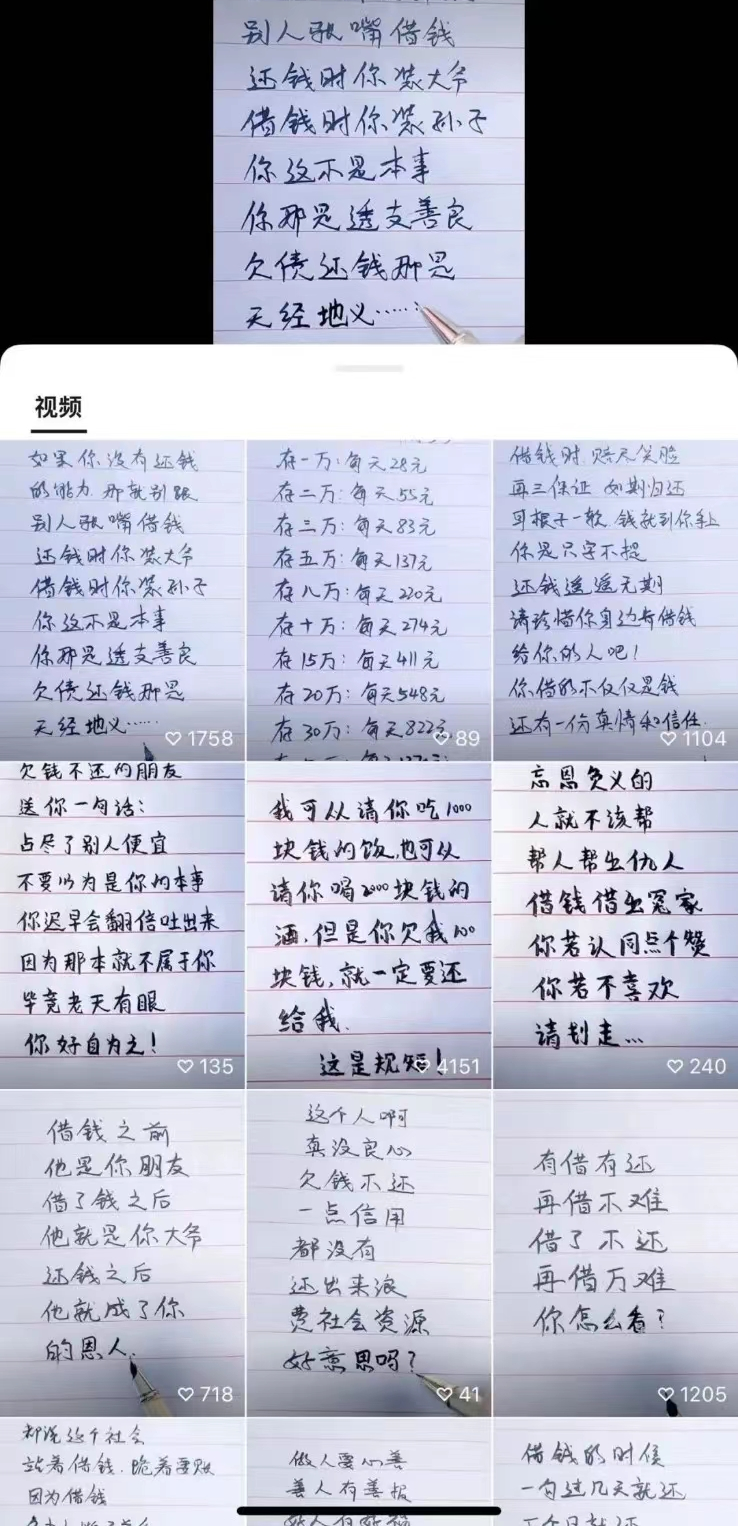 别人张嘴借钱
还钱时你装大爷
借钱时你装孙子
你这不是本事
你那是透支善良
欠债还钱那是
天经地义……
视频
如果你没有还钱
的能力，那就别跟
别人张嘴借钱
还钱时你装大爷
借钱时你装孙子
你这不是本事
你那是透支善良
欠债还钱那是
天经地义……
1758
存一万：每天28元
存二万：每天55元
存三万：每天83元
存五万：每天137元
存八万：每天220元
存十万：每天274元
存15万：每天411元
存20万：每天548元
存30万：每天822元
89
借钱时，赔尽笑脸
再三保证 如期归还
耳根子一软，钱就到你手上
你是只字不提
还钱遥遥无期
请珍惜你身边每借钱
给你的人吧！
你借的不仅仅是钱
还有一份真情和信任.
1104
欠钱不还的朋友
送你一句话：
占尽了别人便宜
不要以为是你的本事
你迟早会翻倍吐出来
因为那本就不属于你
毕竟老天有眼
你好自为之！
135
我可以请你吃1000
块钱的饭，也可以
请你喝2000块钱的
酒，但是你欠我100
块钱，就一定要还
给我.
这是规矩！
4151
忘恩负义的
人就不该帮
帮人帮出仇人
借钱借出冤家
你若认同点个赞
你若不喜欢
请划走…
240
借钱之前
他是你朋友
借了钱之后
他就是你大爷
还钱之后
他就成了你
的恩人.
718
这个人啊
真没良心
欠钱不还
一点信用
都没有
还出来浪
费社会资源
好意思吗？
41
有借有还
再借不难
借了不还
再借万难
你怎么看？
1205
却说这个社会
站着借钱，跪着要账
因为借钱
做人要心善
善人有善报
借钱的时候
一句过几天就还